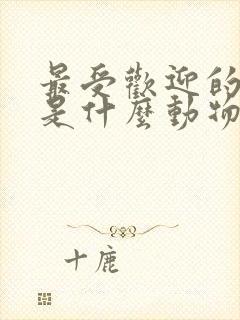 最受歡迎的
是什麼動物
十鹿